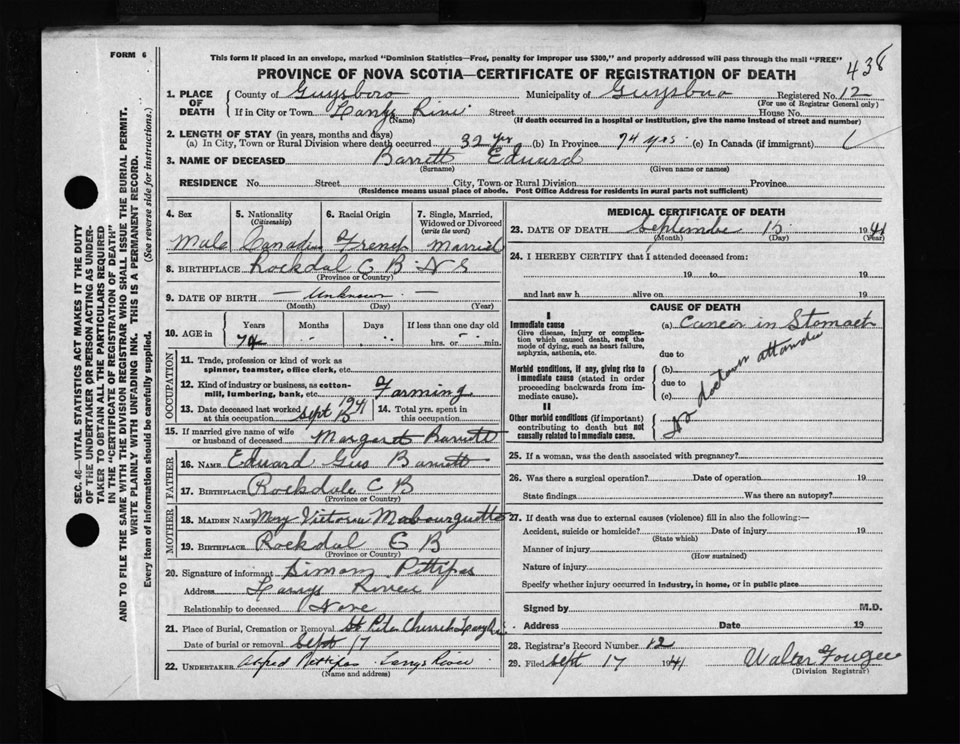 438
FORM 6
This form if placed in an envelope, marked "Dominion Statistics—Free, penalty for improper use $300," and properly addressed will pass through the mail "FREE"
PROVINCE OF NOVA SCOTIA—CERTIFICATE OF REGISTRATION OF DEATH
SEC. 46—VITAL STATISTICS ACT MAKES IT THE DUTY
OF THE UNDERTAKER OR PERSON ACTING AS UNDER-
TAKER TO OBTAIN ALL THE PARTICULARS REQUIRED
IN THE "CERTIFICATE OF REGISTRATION OF DEATH"
AND TO FILE THE SAME WITH THE DIVISION REGISTRAR WHO SHALL ISSUE THE BURIAL PERMIT.
WRITE PLAINLY WITH UNFADING INK. THIS IS A PERMANENT RECORD.
Every item of information should be carefully supplied. (See reverse side for instructions.)
1. PLACE OF DEATH
County of Guysboro Municipality of Guysboro Registered No. 12
(For use of Registrar General only)
If in City or Town Street House No.
(Name) (If death occurred in a hospital or institution, give the name instead of street and number)
2. LENGTH OF STAY (in years, months and days)
(a) In City, Town or Rural Division where death occurred 32 yrs (b) In Province 74 yrs (c) In Canada (if immigrant)
3. NAME OF DECEASED Barrett Eduard
(Surname) (Given name or names)
RESIDENCE No. Street City, Town or Rural Division Province
(Residence means usual place of abode. Post Office Address for residents in rural parts not sufficient)
4. Sex
Male
5. Nationality
(Citizenship)
6. Racial Origin
French
7. Single, Married,
Widowed or Divorced
(write the word)
Married
8. BIRTHPLACE Rockdal C B N S
(Province or Country)
9. DATE OF BIRTH — Unknown —
(Month) (Day) (Year)
10. AGE in Years Months Days If less than one day old
74 - - hrs. or - min.
OCCUPATION
11. Trade, profession or kind of work as
spinner, teamster, office clerk, etc.
12. Kind of industry or business, as cotton-
mill, lumbering, bank, etc. Farming
13. Date deceased last worked
at this occupation Sept 1941
14. Total yrs. spent in
this occupation
15. If married give name of wife
or husband of deceased Margaret Barrett
FATHER
16. NAME Eduard Gus Barrett
17. BIRTHPLACE Rockdale C B
(Province or Country)
MOTHER
18. MAIDEN NAME Mary Victoria
19. BIRTHPLACE Rockdal C B
(Province or Country)
20. Signature of informant Simon Pettipas
Address Larrys River
Relationship to deceased None
21. Place of Burial, Cremation or Removal St Peter Church
Date of burial or removal Sept 17
22. UNDERTAKER Alfred Pettipas Larrys River
(Name and address)
MEDICAL CERTIFICATE OF DEATH
23. DATE OF DEATH September 15 1941
(Month) (Day) (Year)
24. I HEREBY CERTIFY that I attended deceased from:
19 to 19
and last saw h alive on 19
CAUSE OF DEATH
I
Immediate cause
Give disease, injury or complica-
tion which caused death, not the
mode of dying, such as heart failure,
asphyxia, asthenia, etc.
(a) Cancer in Stomach
due to
Morbid conditions, if any, giving rise to
immediate cause (stated in order
proceeding backwards from im-
mediate cause).
(b)
due to
(c)
No doctor attended
II
Other morbid conditions (if important)
contributing to death but not
causally related to immediate cause.
25. If a woman, was the death associated with pregnancy?
26. Was there a surgical operation? Date of operation 19
State findings Was there an autopsy?
27. If death was due to external causes (violence) fill in also the following:—
Accident, suicide or homicide? Date of injury 19
(State which)
Manner of injury
(How sustained)
Nature of injury
Specify whether injury occurred in industry, in home, or in public place
Signed by M.D.
Address Date 19
28. Registrar's Record Number 12
29. Filed Sept 17 1941 Walter Fougere
(Division Registrar)